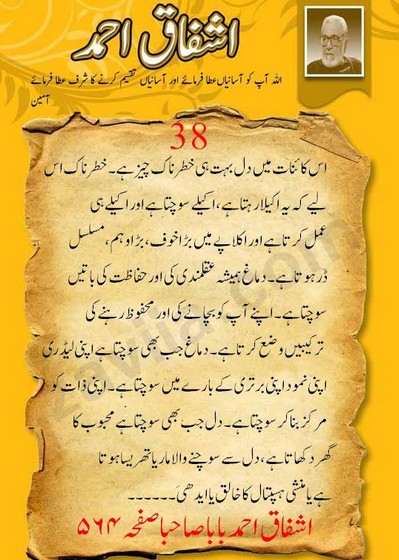 اشفاق احمد
اللہ آپ کو آسانیاں عطا فرمائے اور آسانیاں تقسیم کرنے کا شرف عطا فرمائے
آمین
38
اس کائنات میں دل بہت ہی خطرناک چیز ہے۔ خطرناک اس
لیے کہ یہ اکیلا رہتا ہے، اکیلے سوچتا ہے اور اکیلے ہی
عمل کرتا ہے اور اکلاپے میں بڑا خوف، بڑا وہم، مسلسل
ڈر ہوتا ہے۔ دماغ ہمیشہ عقلمندی کی اور حفاظت کی باتیں
سوچتا ہے۔ اپنے آپ کو بچانے کی اور محفوظ رہنے کی
ترکیبیں وضع کرتا ہے۔ دماغ جب بھی سوچتا ہے اپنی لیڈری
اپنی نمود اپنی برتری کے بارے میں سوچتا ہے۔ اپنی ذات کو
مرکز بنا کر سوچتا ہے۔ دل جب بھی سوچتا ہے محبوب کا
گھر دکھاتا ہے، دل سے سوچنے والا ماریا تھریسا ہوتا
ہے یا منشی ہسپتال کا خالق یا ایدھی۔۔۔۔۔۔
اشفاق احمد بابا صاحبا صفحہ ۵۶۴